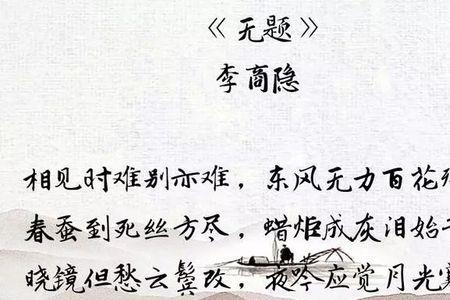 《无题》
李商隐
相见时难别亦难，东风无力百花残
春蚕到死丝方尽，蜡炬成灰泪始干
晓镜但愁云鬓改，夜吟应觉月光寒